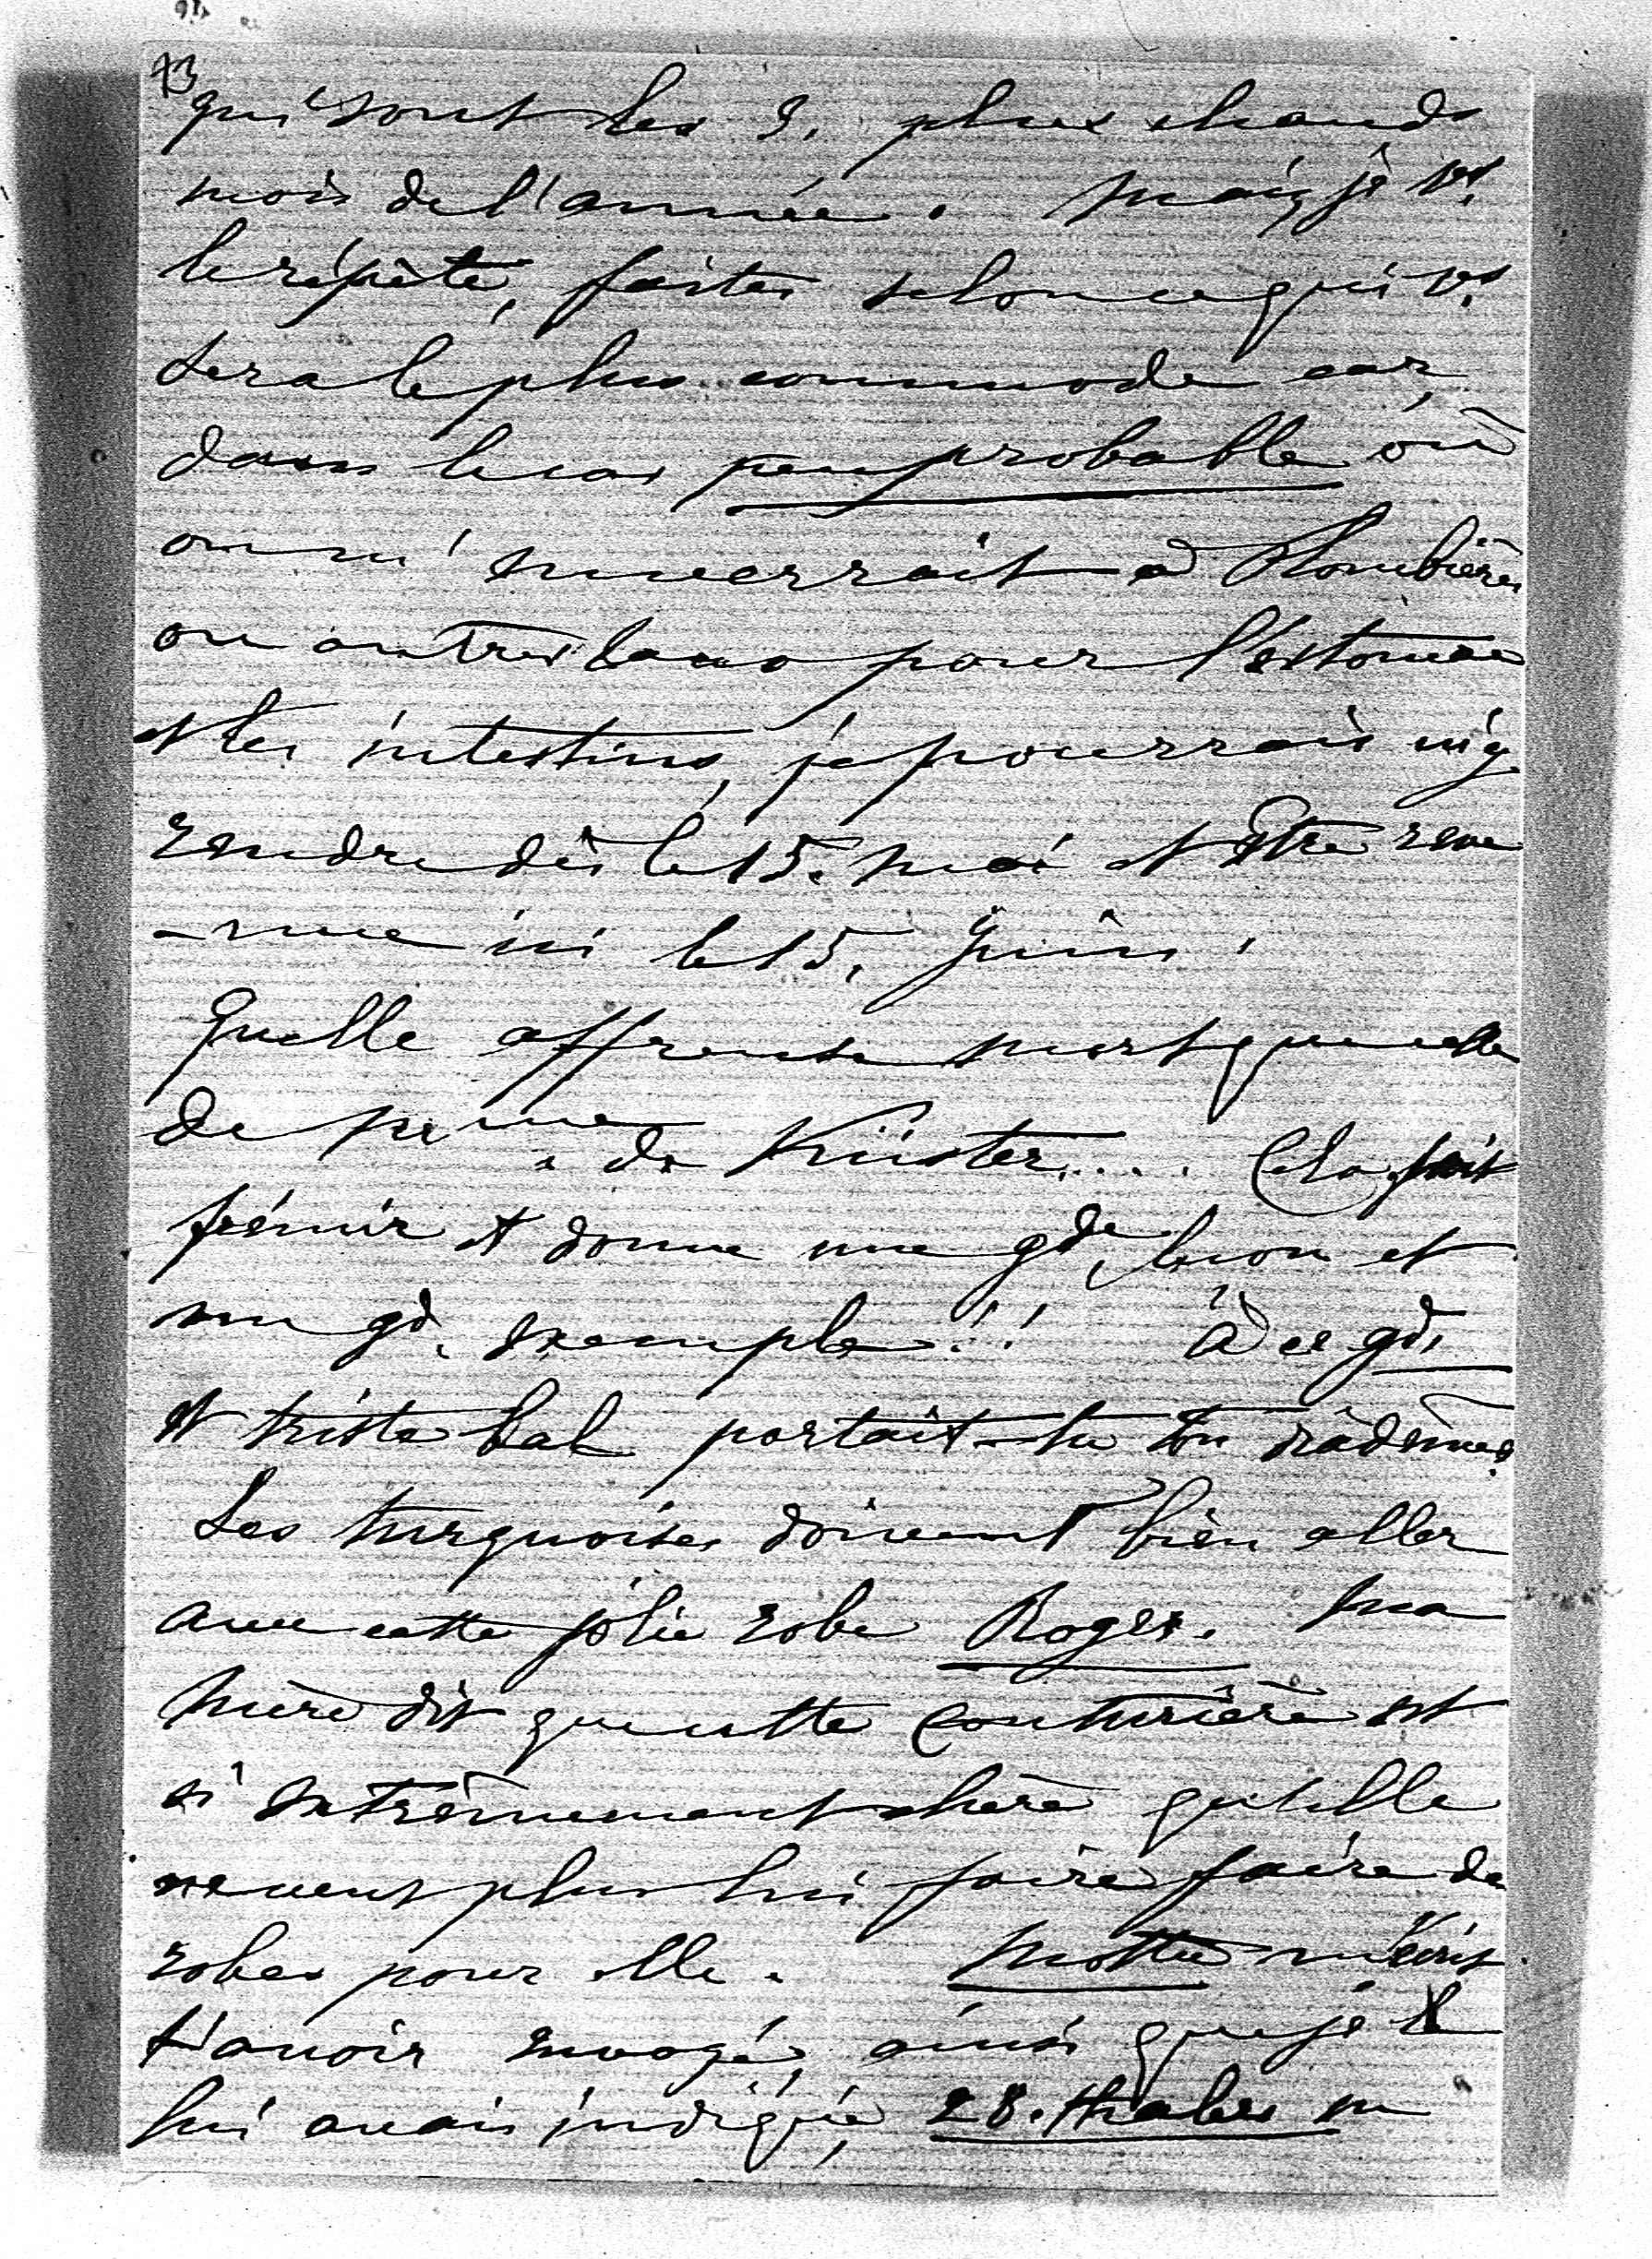 73
qui sont les 3. plus chauds
mois de l'année. Mais, je vs
le répète, faites selon ce qui vs
sera le plus commode car,
dans le cas peu probable où
on m'enverrait à Plombières
ou autres eaux pour l'estomac
et les intestins, je pourrais m'y
rendre dès le 15. Mai et être reve
-nue ici le 15. Juin.
Quelle affreuse mort que celle
de Mme de Küster.... Cela fait
frémir et donne une gde leçon et
un gd. exemple!! À ce gd.
et triste bal portait-tu ton diadème?
Les turquoises doivent bien aller
avec cette jolie robe Roger. Ma
Mère dit que cette Couturière est
si extrêmement chère qu'elle
ne veut plus lui faire faire de
robes pour elle. m'écrit
t'avoir envoyé, ainsi que je le
lui avais indiqué, 28. thalers en